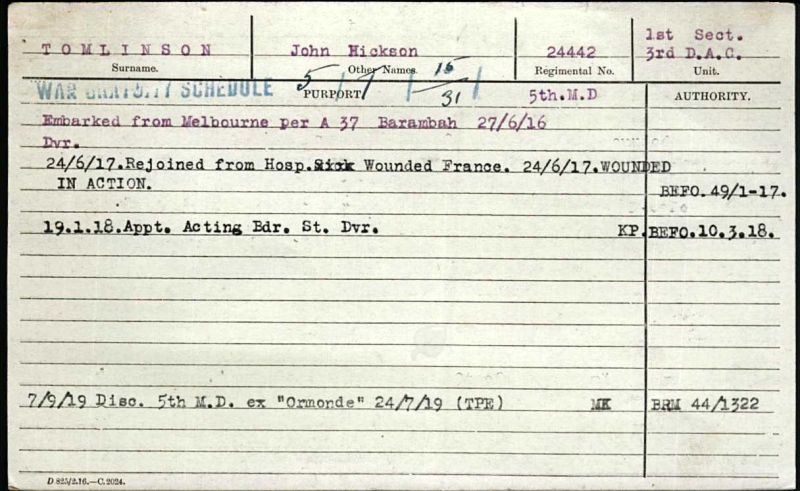 TOMLINSON John Hickson 24442 1st Sect.
3rd D.A.C.
Surname. Other Names. Regimental No. Unit.
WAR GRATUITY SCHEDULE 5 / 7 / 15 / 31
PURPORT. 5th.M.D AUTHORITY.
Embarked from Melbourne per A 37 Barambah 27/6/16
Dvr.
24/6/17.Rejoined from Hosp.Sick Wounded France. 24/6/17.WOUNDED
IN ACTION. BEFO.49/1-17.
19.1.18.Appt. Acting Bdr. St. Dvr. KP.BEFO.10.3.18.
7/9/19 Disc. 5th M.D. ex "Ormonde" 24/7/19 (TPE) MK BRM 44/1322
D 825/2.16.—C.2024.